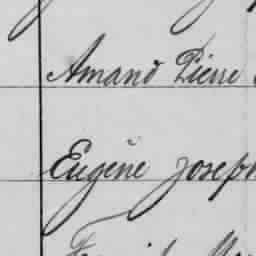 Amand Pierre
Eugène Joseph